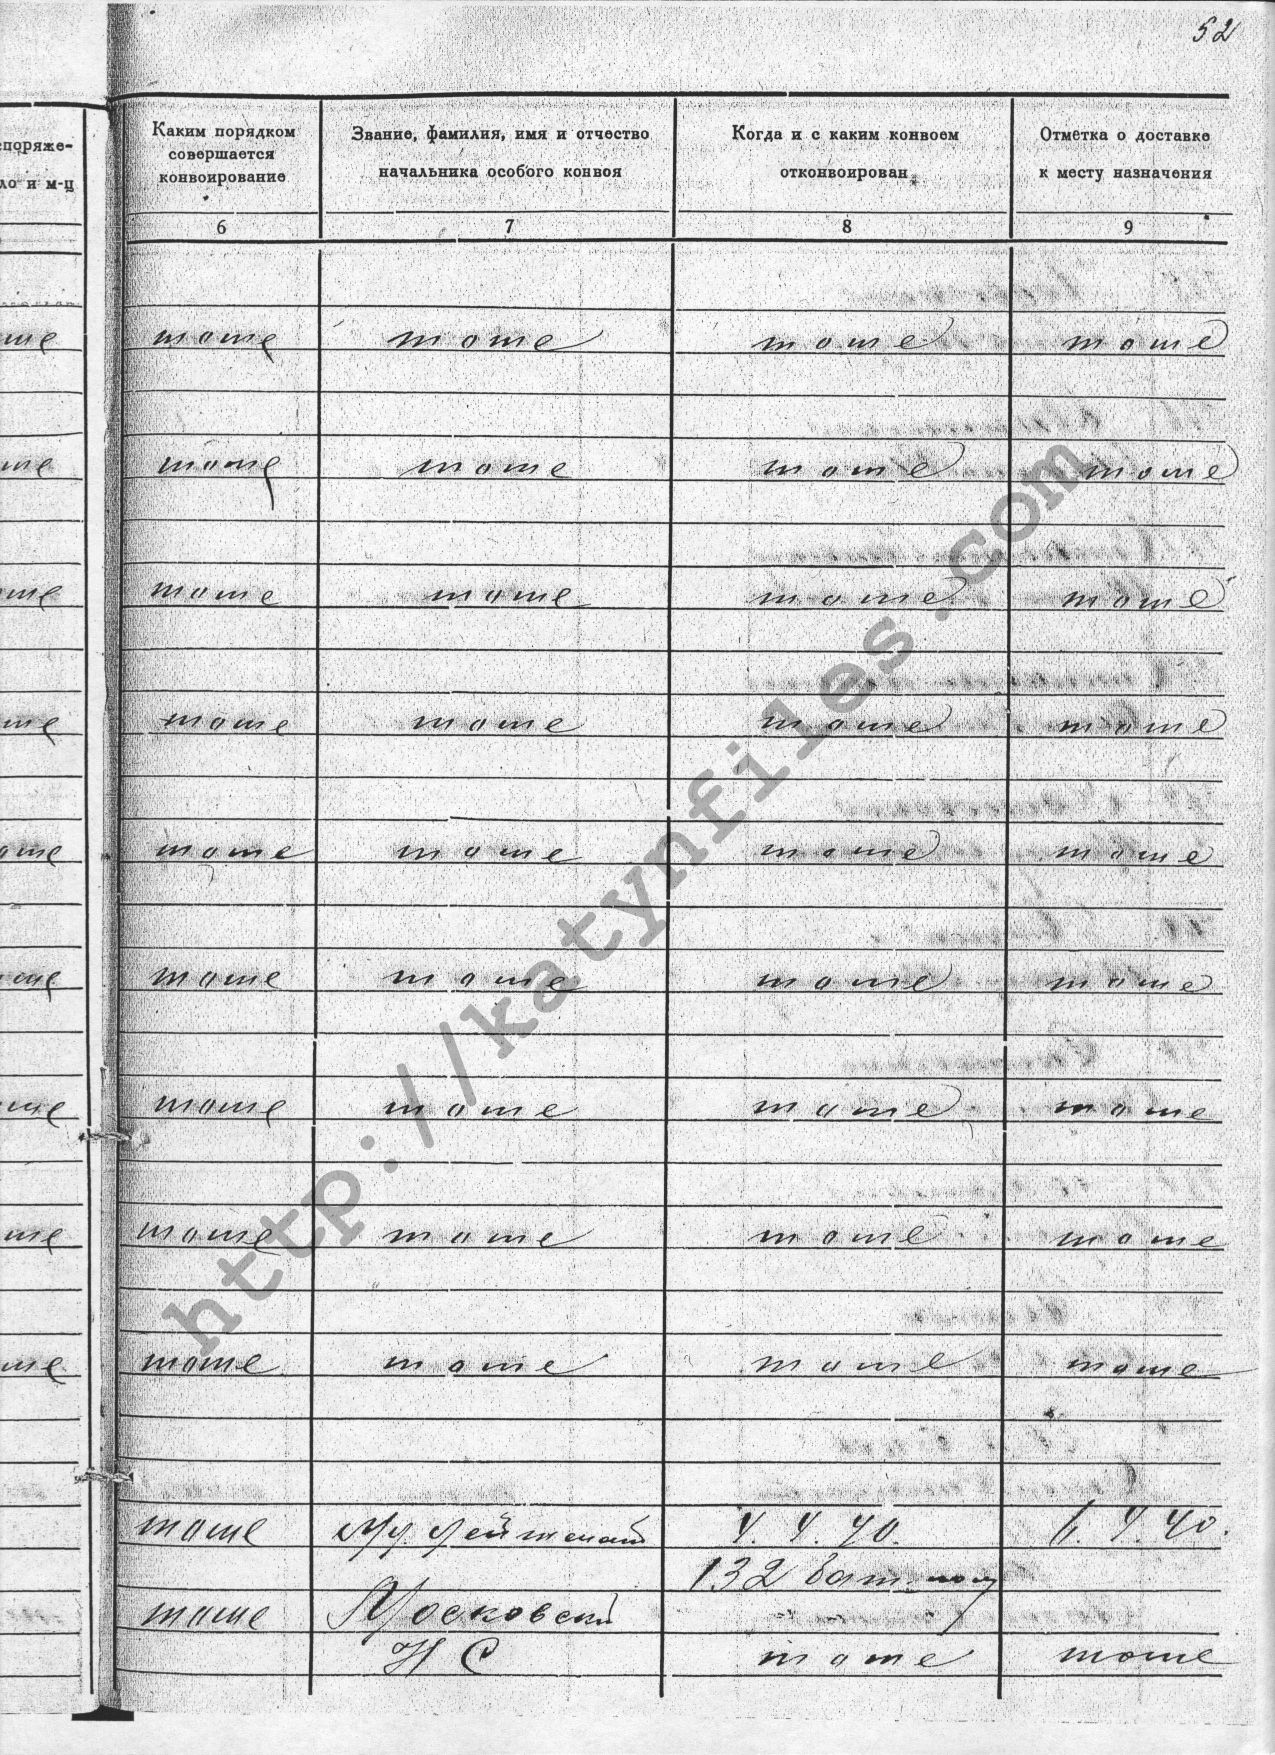 52
споряже-
ло и м-ц
Каким порядком
совершается
конвоирование
Звание, фамилия, имя и отчество
начальника особого конвоя
Когда и с каким конвоем
отконвоирован
Отметка о доставке
к месту назначения
6 7 8 9
тоже тоже тоже тоже
тоже тоже тоже тоже
тоже тоже тоже тоже
тоже тоже тоже тоже
тоже тоже тоже тоже
тоже тоже тоже тоже
тоже тоже тоже тоже
тоже тоже тоже тоже
тоже тоже тоже тоже
тоже Мл. Лейтенант 4. 4. 40. 6. 4. 40.
132 бат.
тоже Московский
Н С тоже тоже
http://katynfiles.com